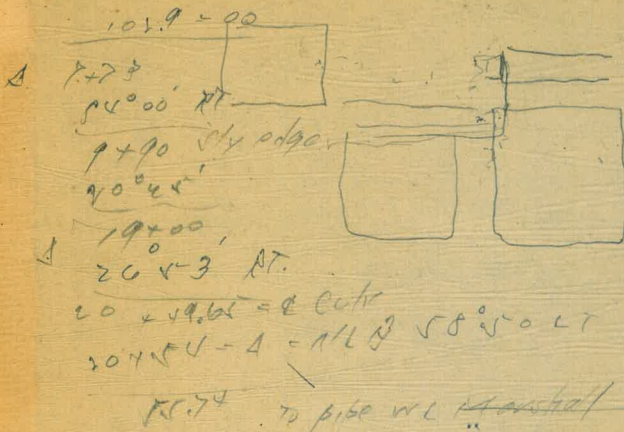 103.9 = 00
Δ 7+73
54°00' RT
9+90 Sly edge
20°45'
19+00
Δ 26°53' RT.
20+49.65 = ¢
20+54 = Δ = 58°50 LT
55.74 To pipe WL Marshall